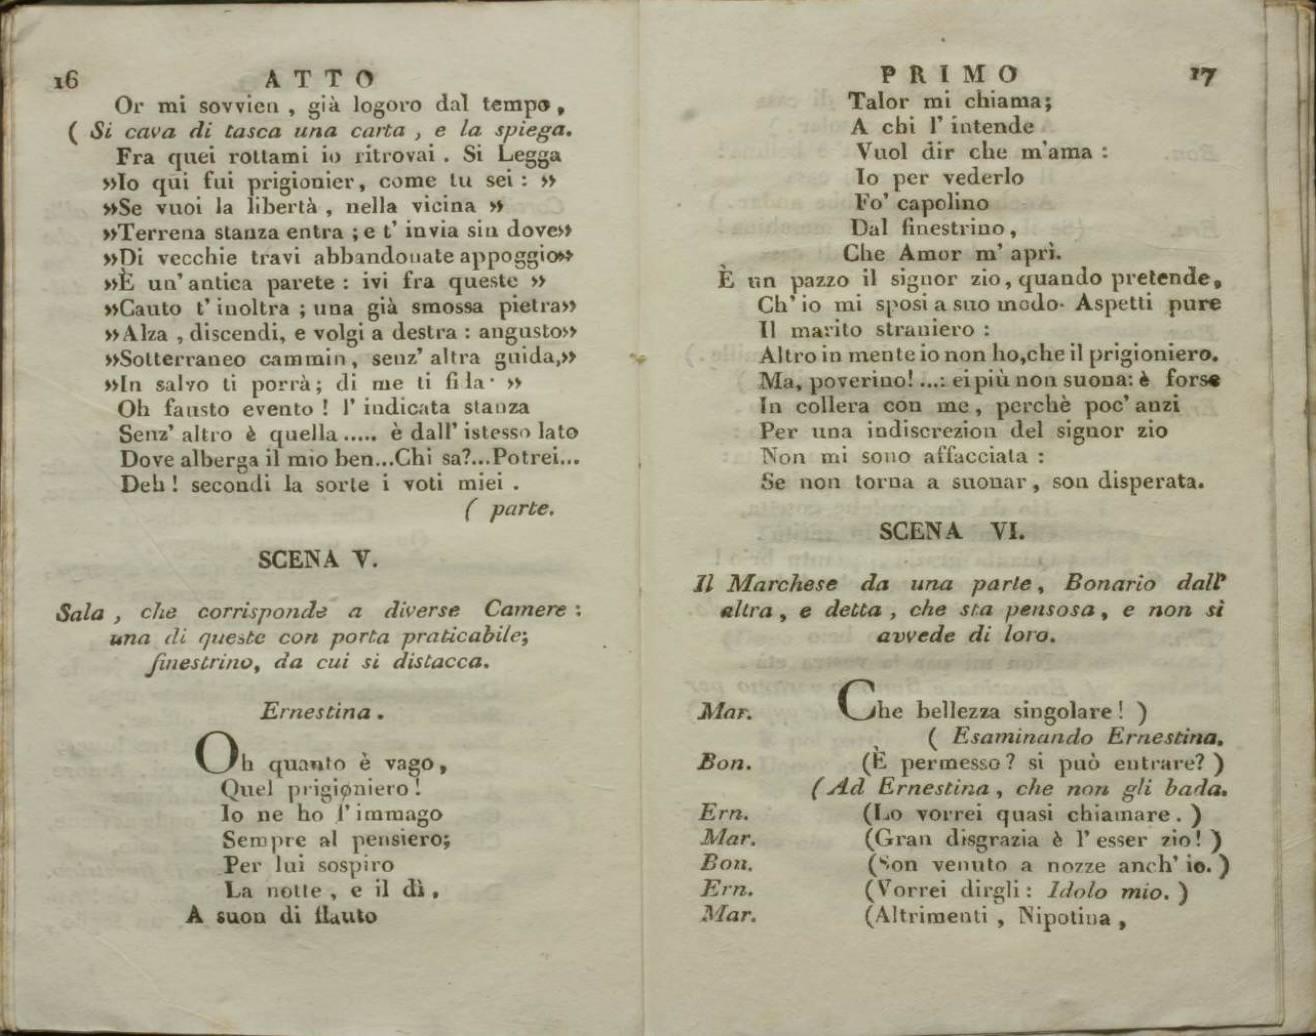 16 ATTO
Or mi sovvien , già logoro dal tempo ,
( Si cava di tasca una carta , e la spiega.
Fra quei rottami io ritrovai . Si Legga
»Io qui fui prigionier, come tu sei : »
»Se vuoi la libertà , nella vicina »
»Terrena stanza entra ; e t' invia sin dove»
»Di vecchie travi abbandonate appoggio»
»È un' antica parete : ivi fra queste »
»Cauto t' inoltra ; una già smossa pietra»
»Alza , discendi, e volgi a destra : angusto»
»Sotterraneo cammin, senz' altra guida,»
»In salvo ti porrà; di me ti fila· »
Oh fausto evento ! l' indicata stanza
Senz' altro è quella ..... è dall' istesso lato
Dove alberga il mio ben...Chi sa?...Potrei...
Deh ! secondi la sorte i voti miei .
( parte.
SCENA V.
Sala , che corrisponde a diverse Camere :
una di queste con porta praticabile;
finestrino, da cui si distacca.
Ernestina .
Oh quanto è vago ,
Quel prigioniero !
Io ne ho l' immago
Sempre al pensiero;
Per lui sospiro
La notte , e il dì ,
A suon di flauto
PRIMO 17
Talor mi chiama;
A chi l' intende
Vuol dir che m'ama :
Io per vederlo
Fo' capolino
Dal finestrino ,
Che Amor m' aprì.
È un pazzo il signor zio, quando pretende,
Ch' io mi sposi a suo modo· Aspetti pure
Il marito straniero :
Altro in mente io non ho,che il prigioniero.
Ma, poverino! ...: ei più non suona: è forse
In collera con me , perchè poc' anzi
Per una indiscrezion del signor zio
Non mi sono affacciata :
Se non torna a suonar , son disperata.
SCENA VI.
Il Marchese da una parte , Bonario dall'
altra , e detta , che sta pensosa , e non si
avvede di loro.
Mar. Che bellezza singolare ! )
( Esaminando Ernestina.
Bon. (È permesso ? si può entrare? )
(Ad Ernestina , che non gli bada.
Ern. (Lo vorrei quasi chiamare . )
Mar. (Gran disgrazia è l' esser zio! )
Bon. (Son venuto a nozze anch' io. )
Ern. (Vorrei dirgli : Idolo mio. )
Mar. (Altrimenti , Nipotina ,